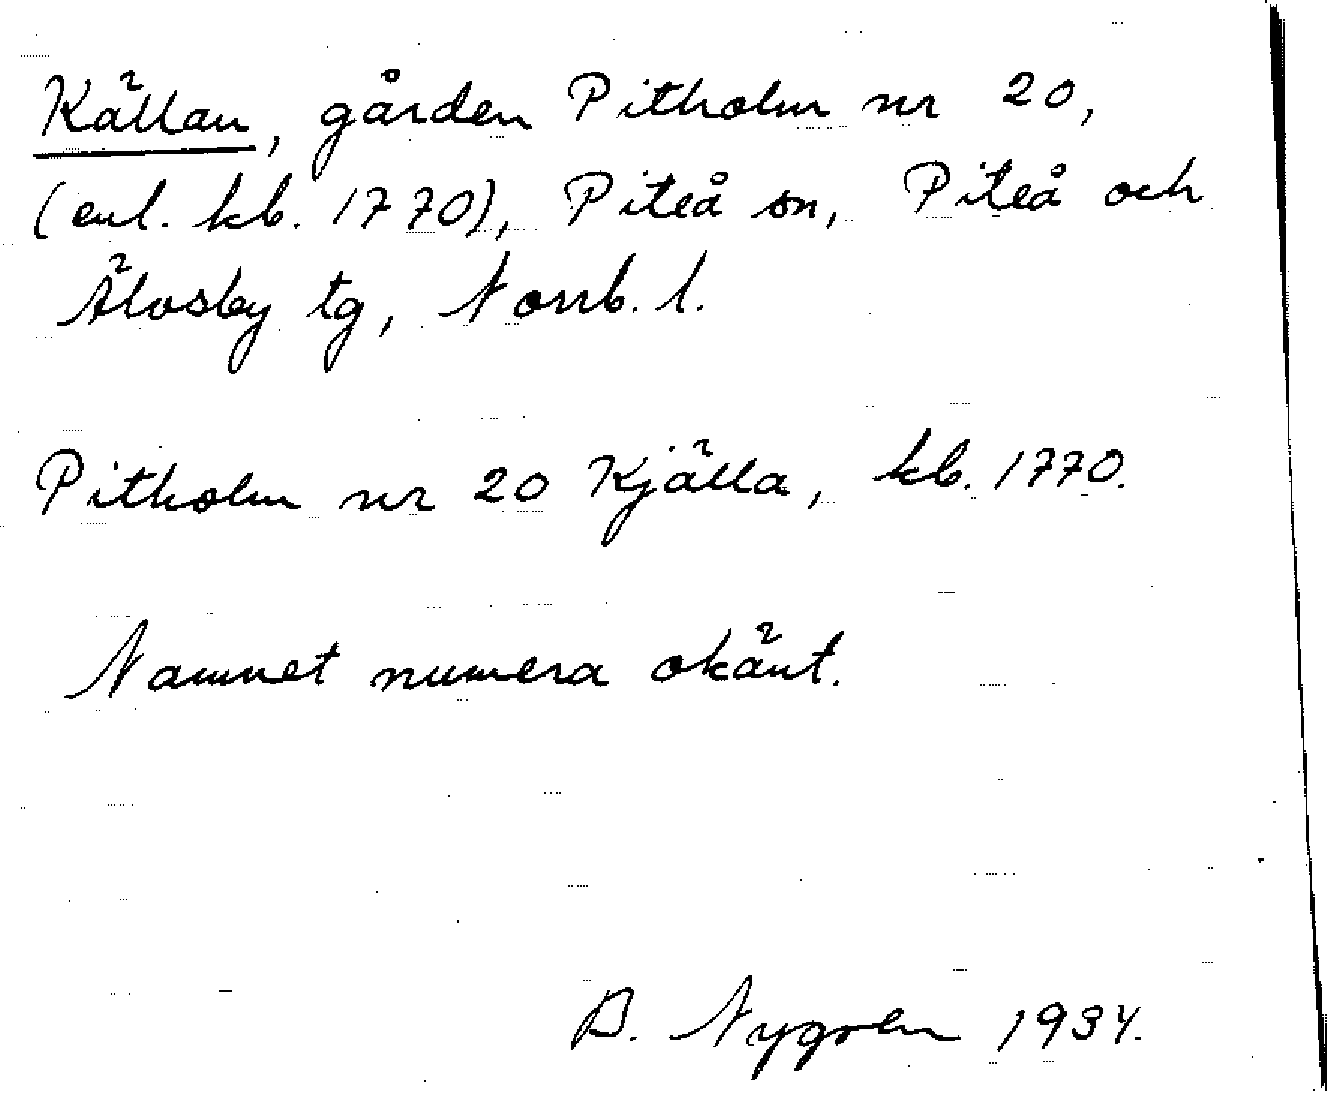 Källan, gården Pitholm nr 20,
(enl. kb. 1770), Piteå sn, Piteå och
Älvsby tg, Norrb. l.
Pitholm nr 20 Kjälla, kb. 1770.
Namnet numera okänt.
B. Nygren 1934.